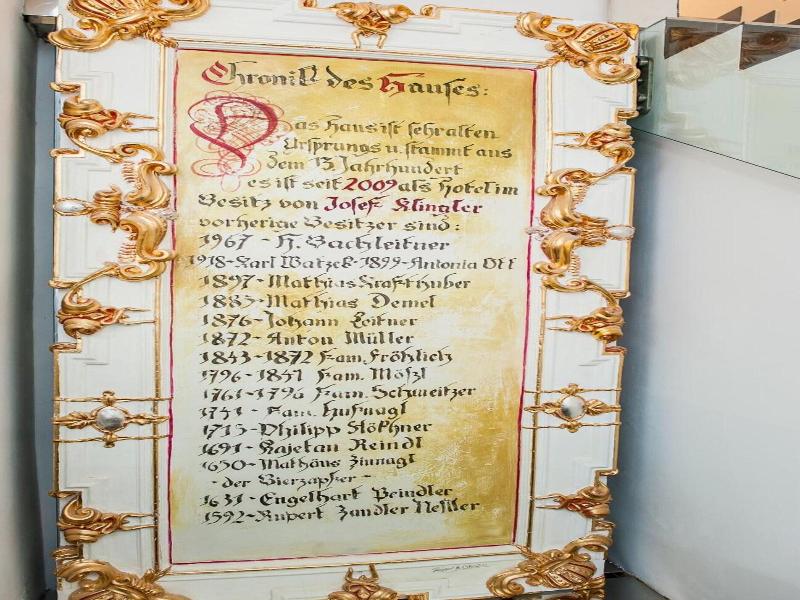 Chronik des Hauses:
Das Haus ist sehr alten
Ursprungs u. stammt aus
dem 13 Jahrhundert
es ist seit 2009 als Hotel im
Besitz von Josef Klingler
vorherige Besitzer sind:
1967 - H. Bachleitner
1918 - Karl Watzek - 1899 - Antonia Ott
1897 - Mathias Krafthuber
1885 - Mathias Demel
1876 - Johann Leitner
1872 - Anton Müller
1843 - 1872 Fam. Fröhlich
1796 - 1841 Fam. Mößl
1761 - 1796 Fam. Schweitzer
1741 - Fam. Hufnagl
1713 - Philipp Stökhner
1691 - Kajetan Reindl
1650 - Mathäus Zinnagl
- der Bierzapfer -
1631 - Engelhart Peindler
1592 - Rupert Zandler Neßler